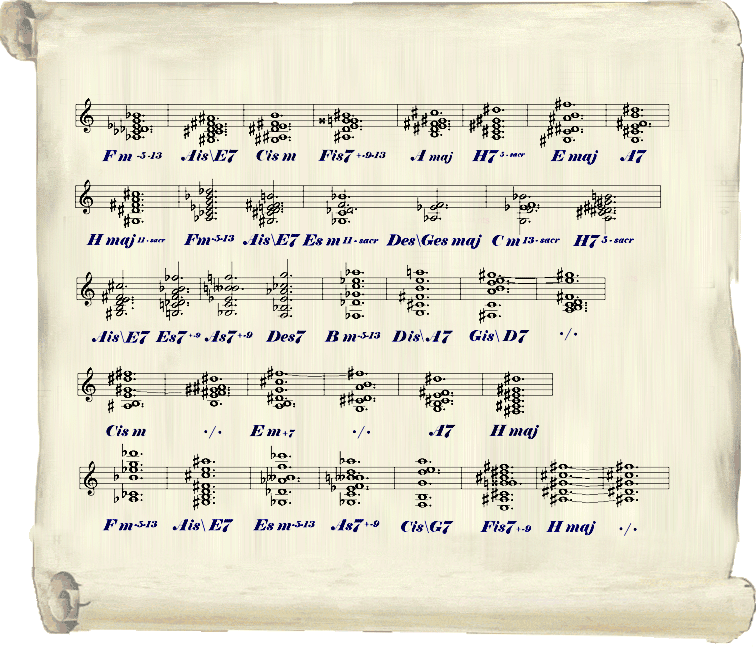 F m -5-13 Ais\E7 Cis m Fis7 +-9-13 A maj H7 5-sacr E maj A7
H maj 11-sacr Fm-5-13 Ais\E7 Es m 11-sacr Des\Ges maj C m 13-sacr H7 5-sacr
Ais\E7 Es7 +-9 As7 +-9 Des7 B m-5-13 Dis\A7 Gis\D7 ·/·
Cis m ·/· E m +7 ·/· A7 H maj
F m -5-13 Ais\E7 Es m-5-13 As7 +-9 Cis\G7 Fis7 +-9 H maj ·/·